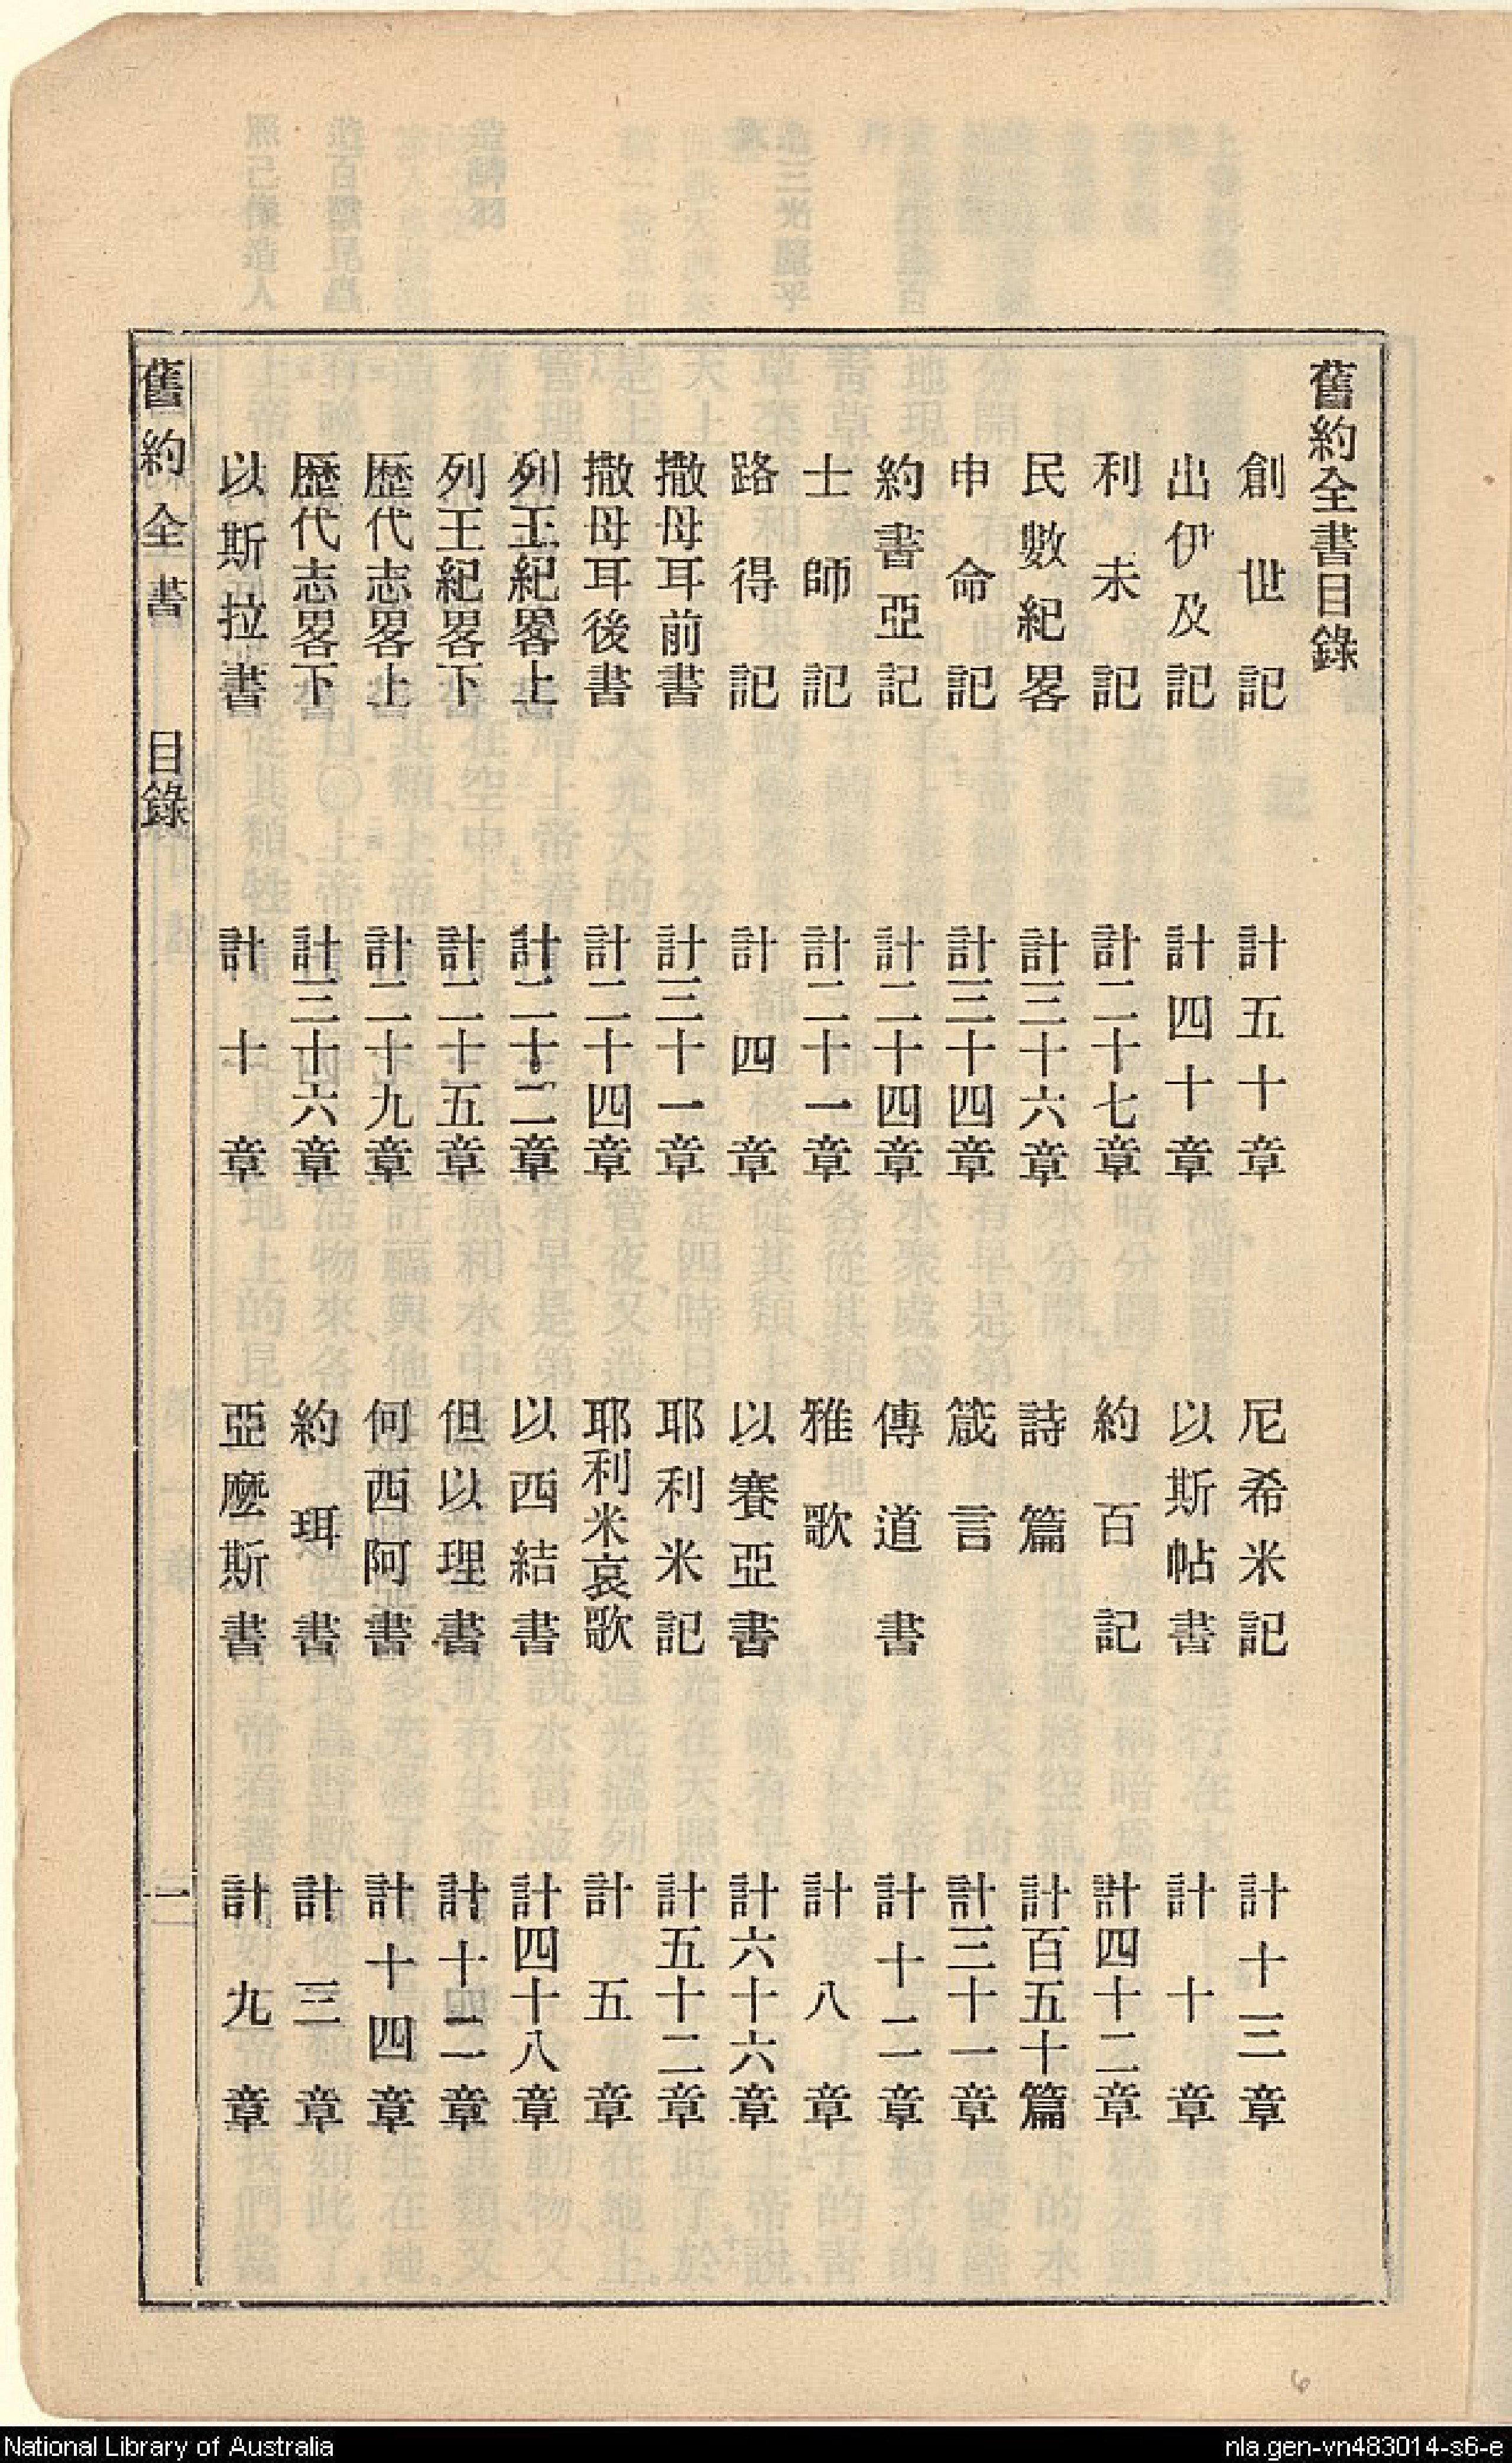 舊約全書目錄
創世記 計五十章
出伊及記 計四十章
利未記 計二十七章
民數紀畧 計三十六章
申命記 計三十四章
約書亞記 計二十四章
士師記 計二十一章
路得記 計四章
撒母耳前書 計三十一章
撒母耳後書 計二十四章
列王紀畧上 計二十二章
列王紀畧下 計二十五章
歷代志畧上 計二十九章
歷代志畧下 計三十六章
以斯拉書 計十章
尼希米記 計十三章
以斯帖書 計十章
約百記 計四十二章
詩篇 計百五十篇
箴言 計三十一章
傳道書 計十二章
雅歌 計八章
以賽亞書 計六十六章
耶利米記 計五十二章
耶利米哀歌 計五章
以西結書 計四十八章
但以理書 計十二章
何西阿書 計十四章
約珥書 計三章
亞麽斯書 計九章
舊約全書 目錄 一
6
National Library of Australia
nla.gen-vn483014-s6-e